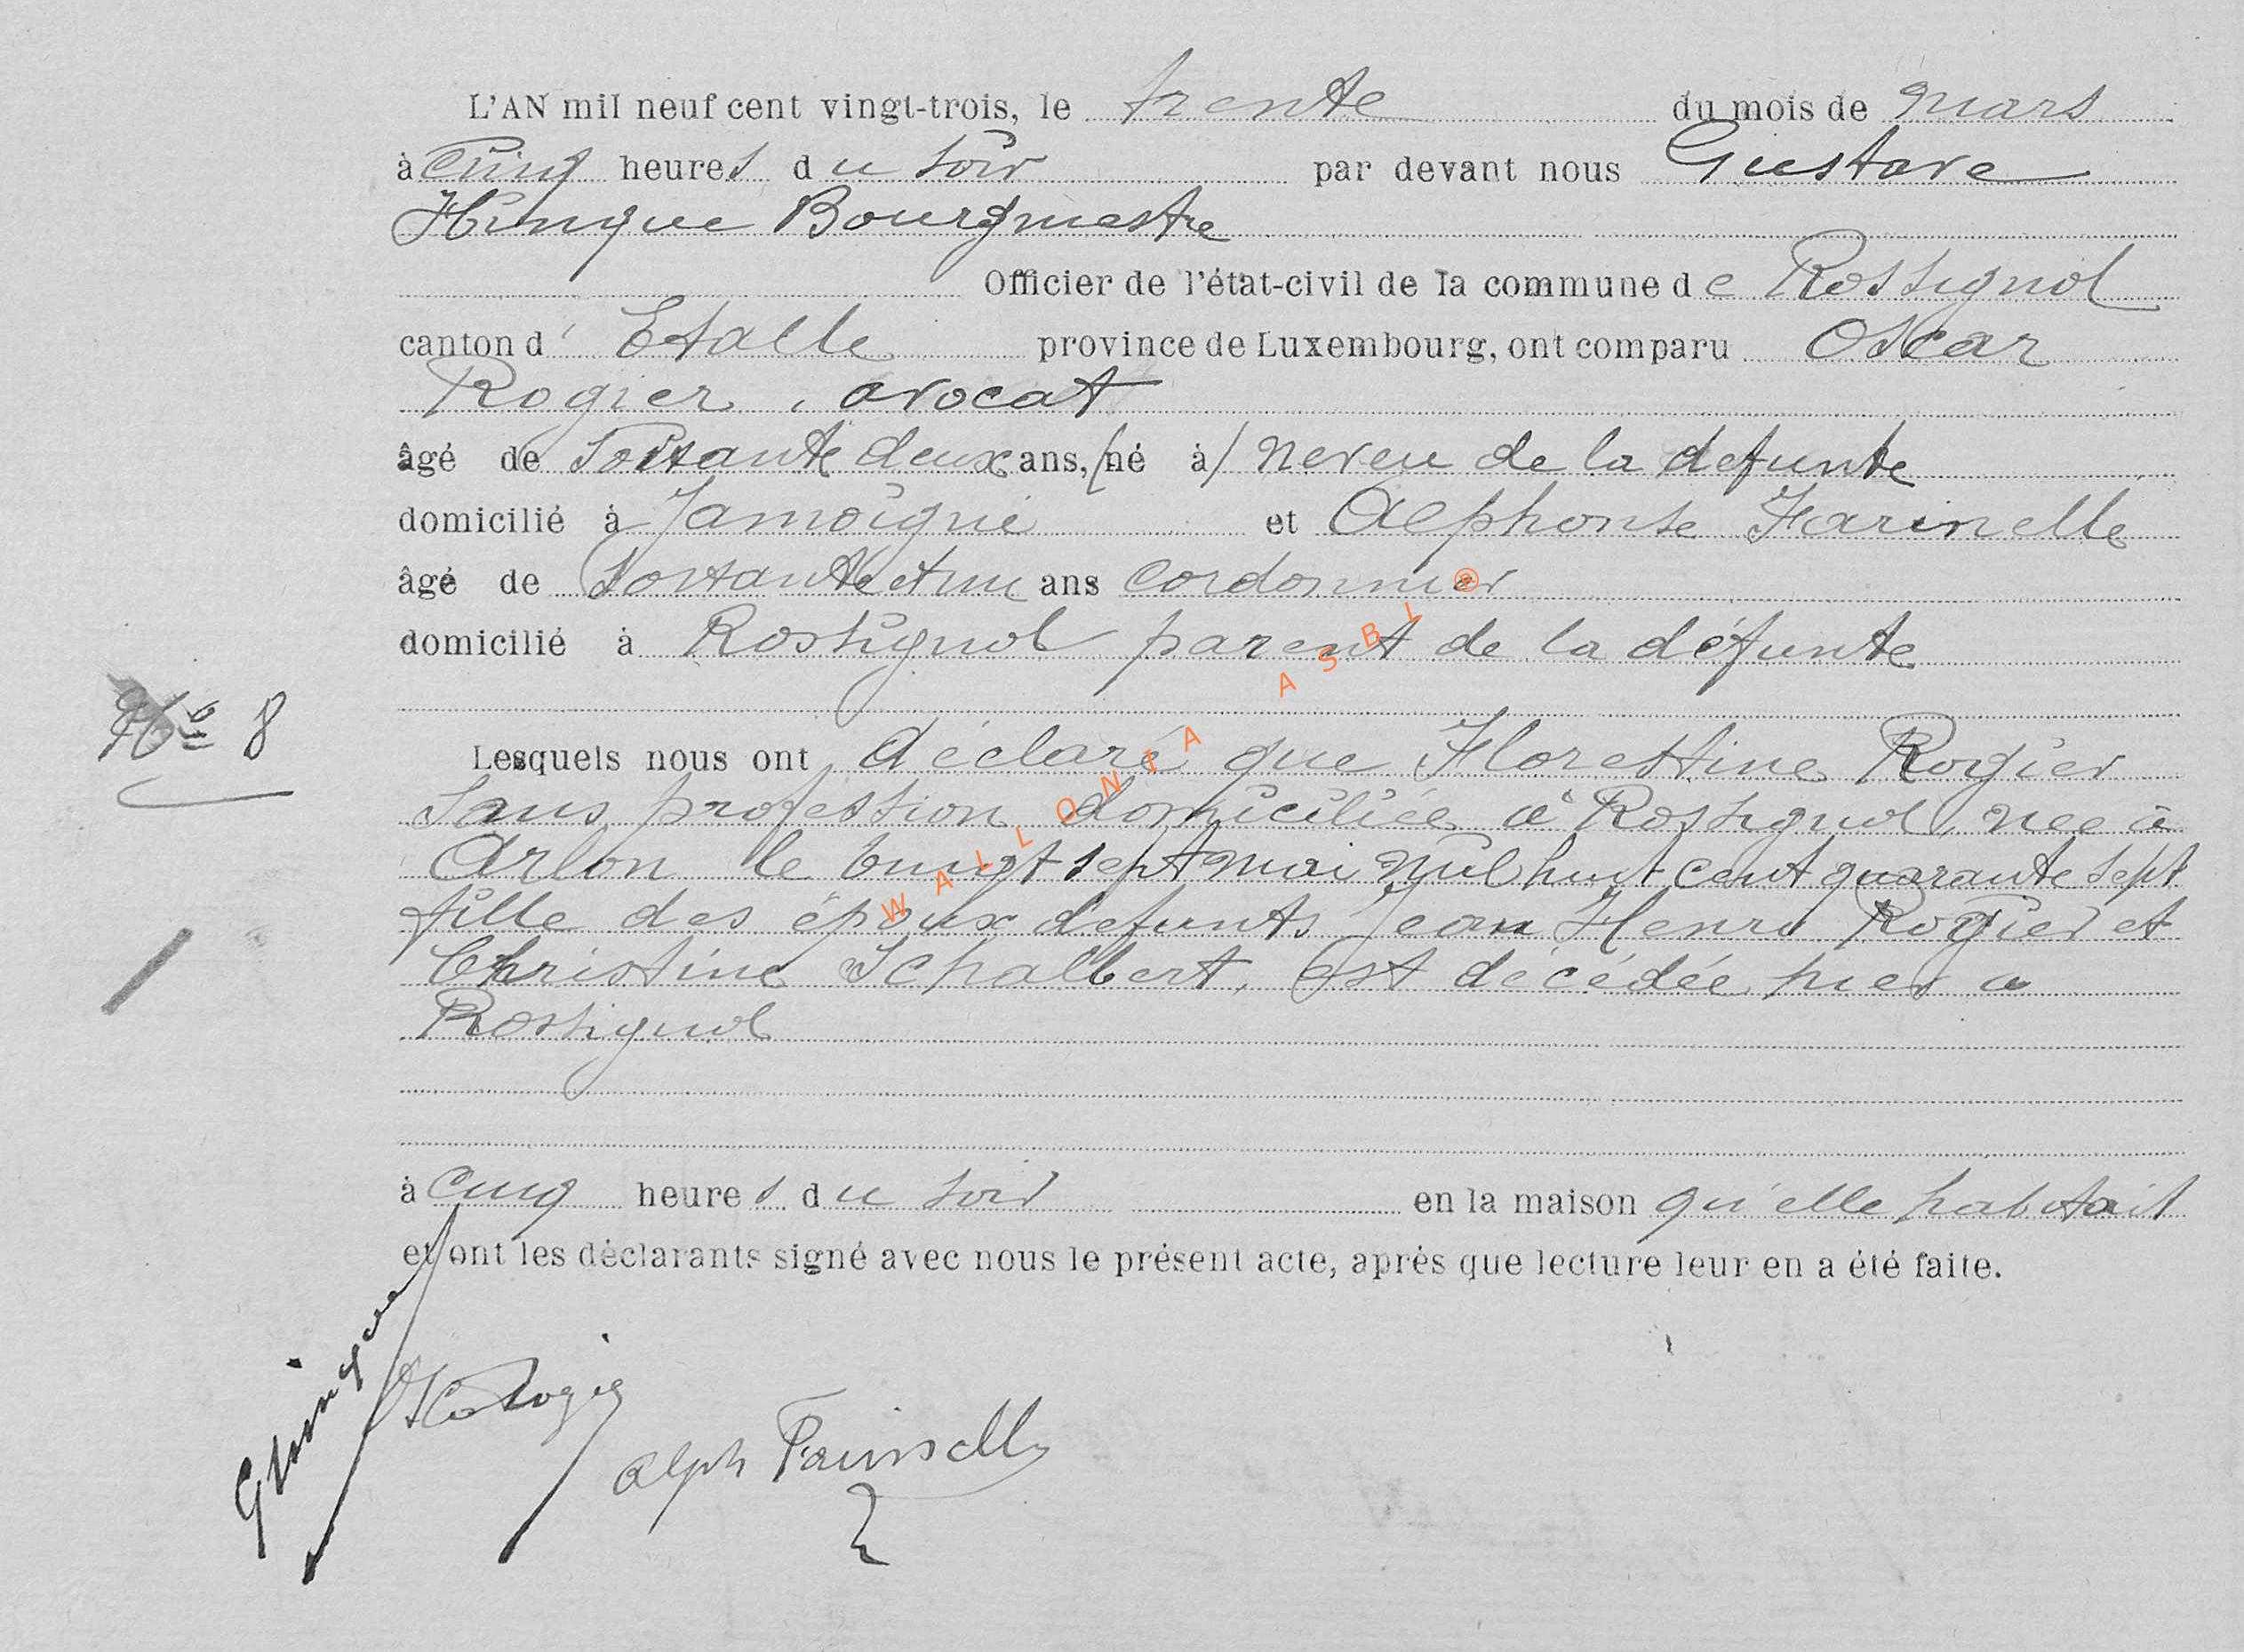 L'AN mil neuf cent vingt-trois, le trente du mois de mars
à cinq heures du soir par devant nous Gustave
Hinque Bourgmestre
Officier de l'état-civil de la commune de Rossignol
canton d' Etalle province de Luxembourg, ont comparu Oscar
Rogier, avocat
âgé de soixante deux ans, (né à) neveu de la defunte
domicilié à Jamoigne et Alphonse Farinelle
âgé de soixante et un ans cordonnier
domicilié à Rossignol parent de la défunte
No 8
Lesquels nous ont déclaré que Florestine Rogier
sans profession domiciliée à Rossignol, née à
Arlon le vingt sept mai mil huit cent quarante sept
fille des époux defunts Jean Henri Rogier et
Christine Schalbert, est décédée hier a
Rossignol
à cinq heures du soir en la maison qu'elle habitait
et ont les déclarants signé avec nous le présent acte, après que lecture leur en a été faite.
GHinque
Rogier
Alph Farinelle
WALLONIA ASBL ®